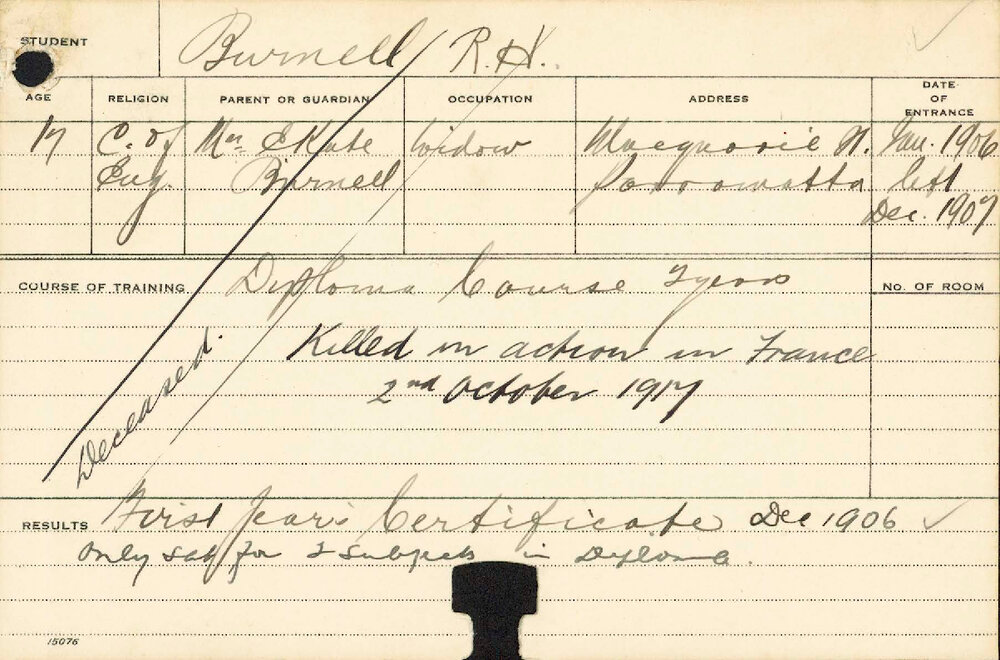 STUDENT Burnell R.H.
AGE RELIGION PARENT OR GUARDIAN OCCUPATION ADDRESS DATE OF ENTRANCE
17 C. of Mrs Kate Widow Macquarie St. Jan. 1906
Eng. Burnell Parramatta left
Dec. 1907
COURSE OF TRAINING Diploma Course 2 years No. OF ROOM
Killed in action in France
2nd October 1917
Deceased.
RESULTS First Year's Certificate Dec 1906 ✓
Only sat for 2 subjects in Diploma.
15076